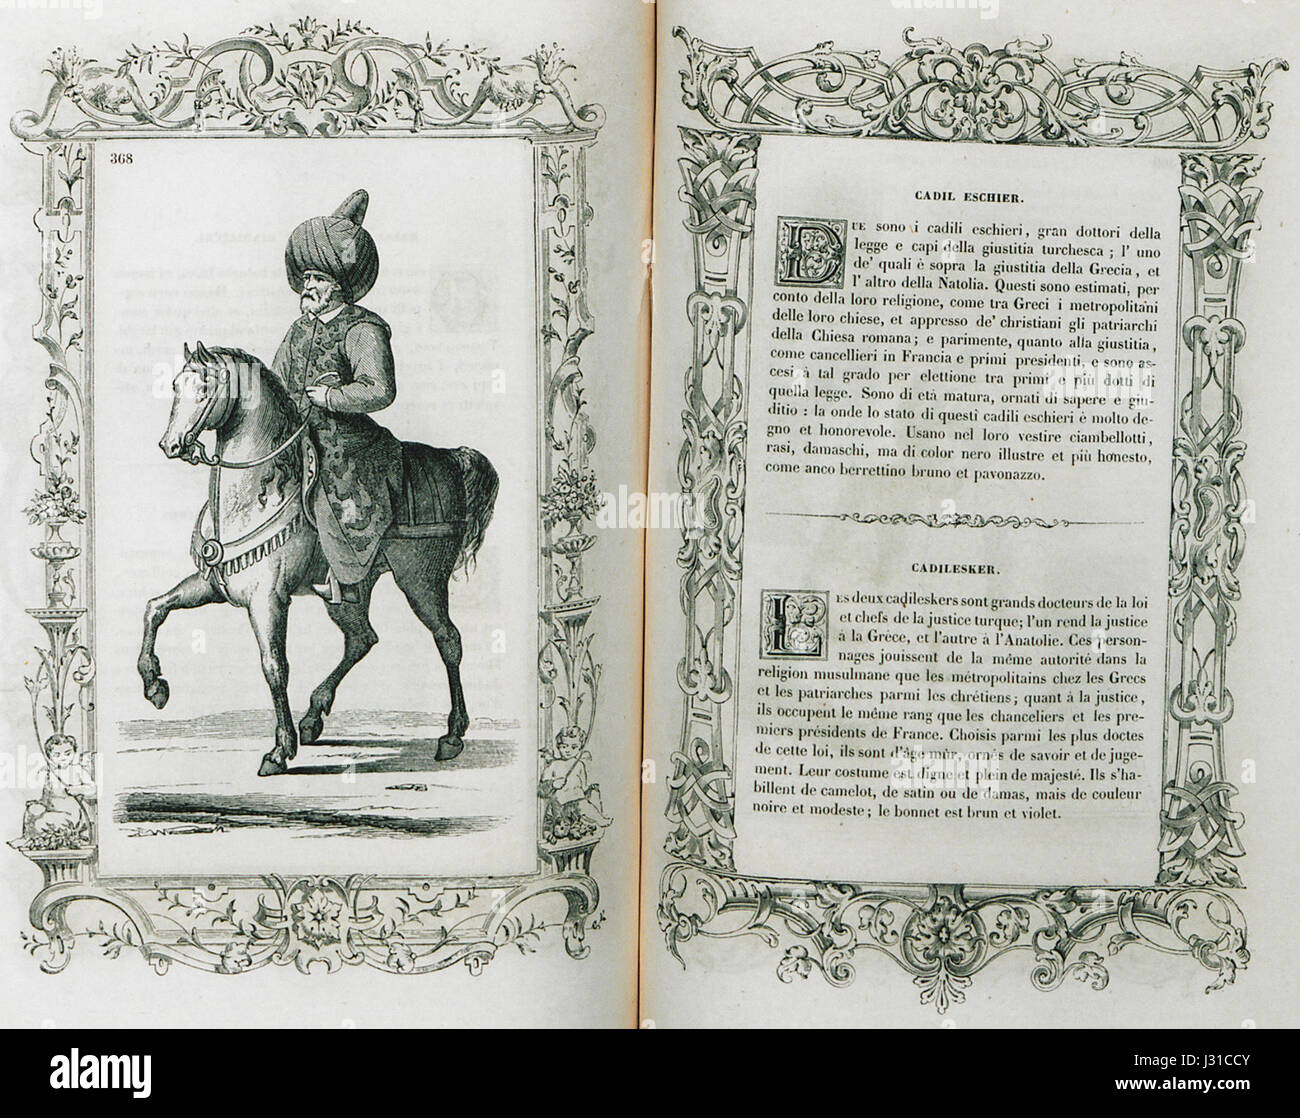 368
CADIL ESCHIER.
DUE sono i cadili eschieri, gran dottori della
legge e capi della giustitia turchesca ; l' uno
de' quali è sopra la giustitia della Grecia, et
l' altro della Natolia. Questi sono estimati, per
conto della loro religione, come tra Greci i metropolitani
delle loro chiese, et appresso de' christiani gli patriarchi
della Chiesa romana; e parimente, quanto alla giustitia,
come cancellieri in Francia e primi presidenti, e sono as-
cesi à tal grado per elettione tra primi e più dotti di
quella legge. Sono di età matura, ornati di sapere et giu-
ditio : la onde lo stato di questi cadili eschieri è molto de-
gno et honorevole. Usano nel loro vestire ciambellotti,
rasi, damaschi, ma di color nero illustre et più honesto,
come anco berrettino bruno et pavonazzo.
CADILESKER.
LES deux cadileskers sont grands docteurs de la loi
et chefs de la justice turque; l'un rend la justice
à la Grèce, et l'autre à l'Anatolie. Ces person-
nages jouissent de la même autorité dans la
religion musulmane que les métropolitains chez les Grecs
et les patriarches parmi les chrétiens; quant à la justice,
ils occupent le même rang que les chanceliers et les pre-
miers présidents de France. Choisis parmi les plus doctes
de cette loi, ils sont d'âge mûr, ornés de savoir et de juge-
ment. Leur costume est digne et plein de majesté. Ils s'ha-
billent de camelot, de satin ou de damas, mais de couleur
noire et modeste; le bonnet est brun et violet.
alamy stock photo
alamy
J31CCY
www.alamy.com